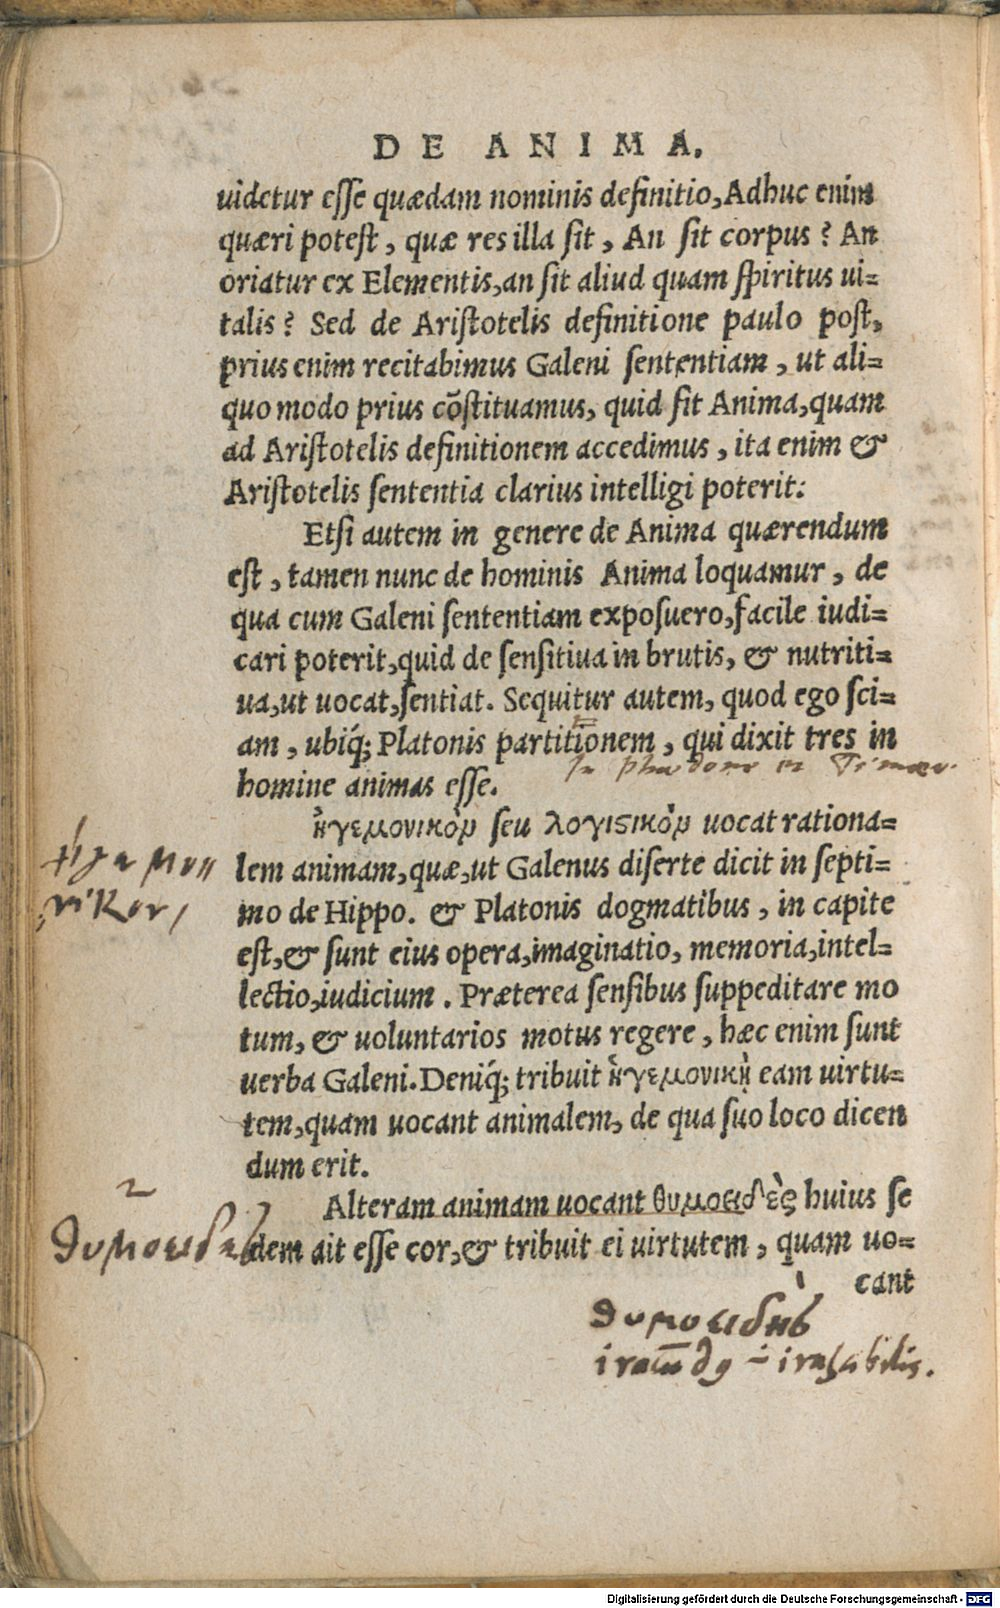 DE ANIMA.
uidetur esse quædam nominis definitio, Adhuc enim
quæri potest, quæ res illa sit, An sit corpus? An
oriatur ex Elementis, an sit aliud quam spiritus ui=
talis? Sed de Aristotelis definitione paulo post,
prius enim recitabimus Galeni sententiam, ut ali=
quo modo prius cõstituamus, quid sit Anima, quam
ad Aristotelis definitionem accedimus, ita enim &
Aristotelis sententia clarius intelligi poterit:
Etsi autem in genere de Anima quærendum
est, tamen nunc de hominis Anima loquamur, de
qua cum Galeni sententiam exposuero, facile iudi=
cari poterit, quid de sensitiua in brutis, & nutriti=
ua, ut uocat, sentiat. Sequitur autem, quod ego sci=
am, ubiq́; Platonis partitionem, qui dixit tres in
In phædone et Timæo.
homine animas esse.
ἡγεμονικὸν seu λογιστικὸν uocat rationa=
lem animam, quæ, ut Galenus diserte dicit in septi=
mo de Hippo. & Platonis dogmatibus, in capite
est, & sunt eius opera, imaginatio, memoria, intel=
lectio, iudicium. Præterea sensibus suppeditare mo
tum, & uoluntarios motus regere, hæc enim sunt
uerba Galeni. Deniq́; tribuit ἡγεμονικῇ eam uirtu=
tem, quam uocant animalem, de qua suo loco dicen
dum erit.
ἡγεμον
νικον,
2
Alteram animam uocant θυμοειδὲς huius se
dem ait esse cor, & tribuit ei uirtutem, quam uo=
cant
θυμοειδες
θυμοειδὴς
irascibilis.
Digitalisierung gefördert durch die Deutsche Forschungsgemeinschaft - DFG